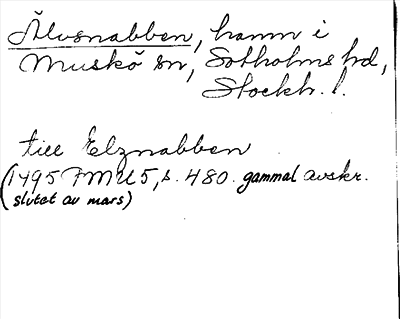 Älvsnabben, hamn i
Muskö sn, Sotholms hd,
Stockh. l.
till Elznabben
1495 FMU 5, s. 480. gammal avskr.
(slutet av mars)